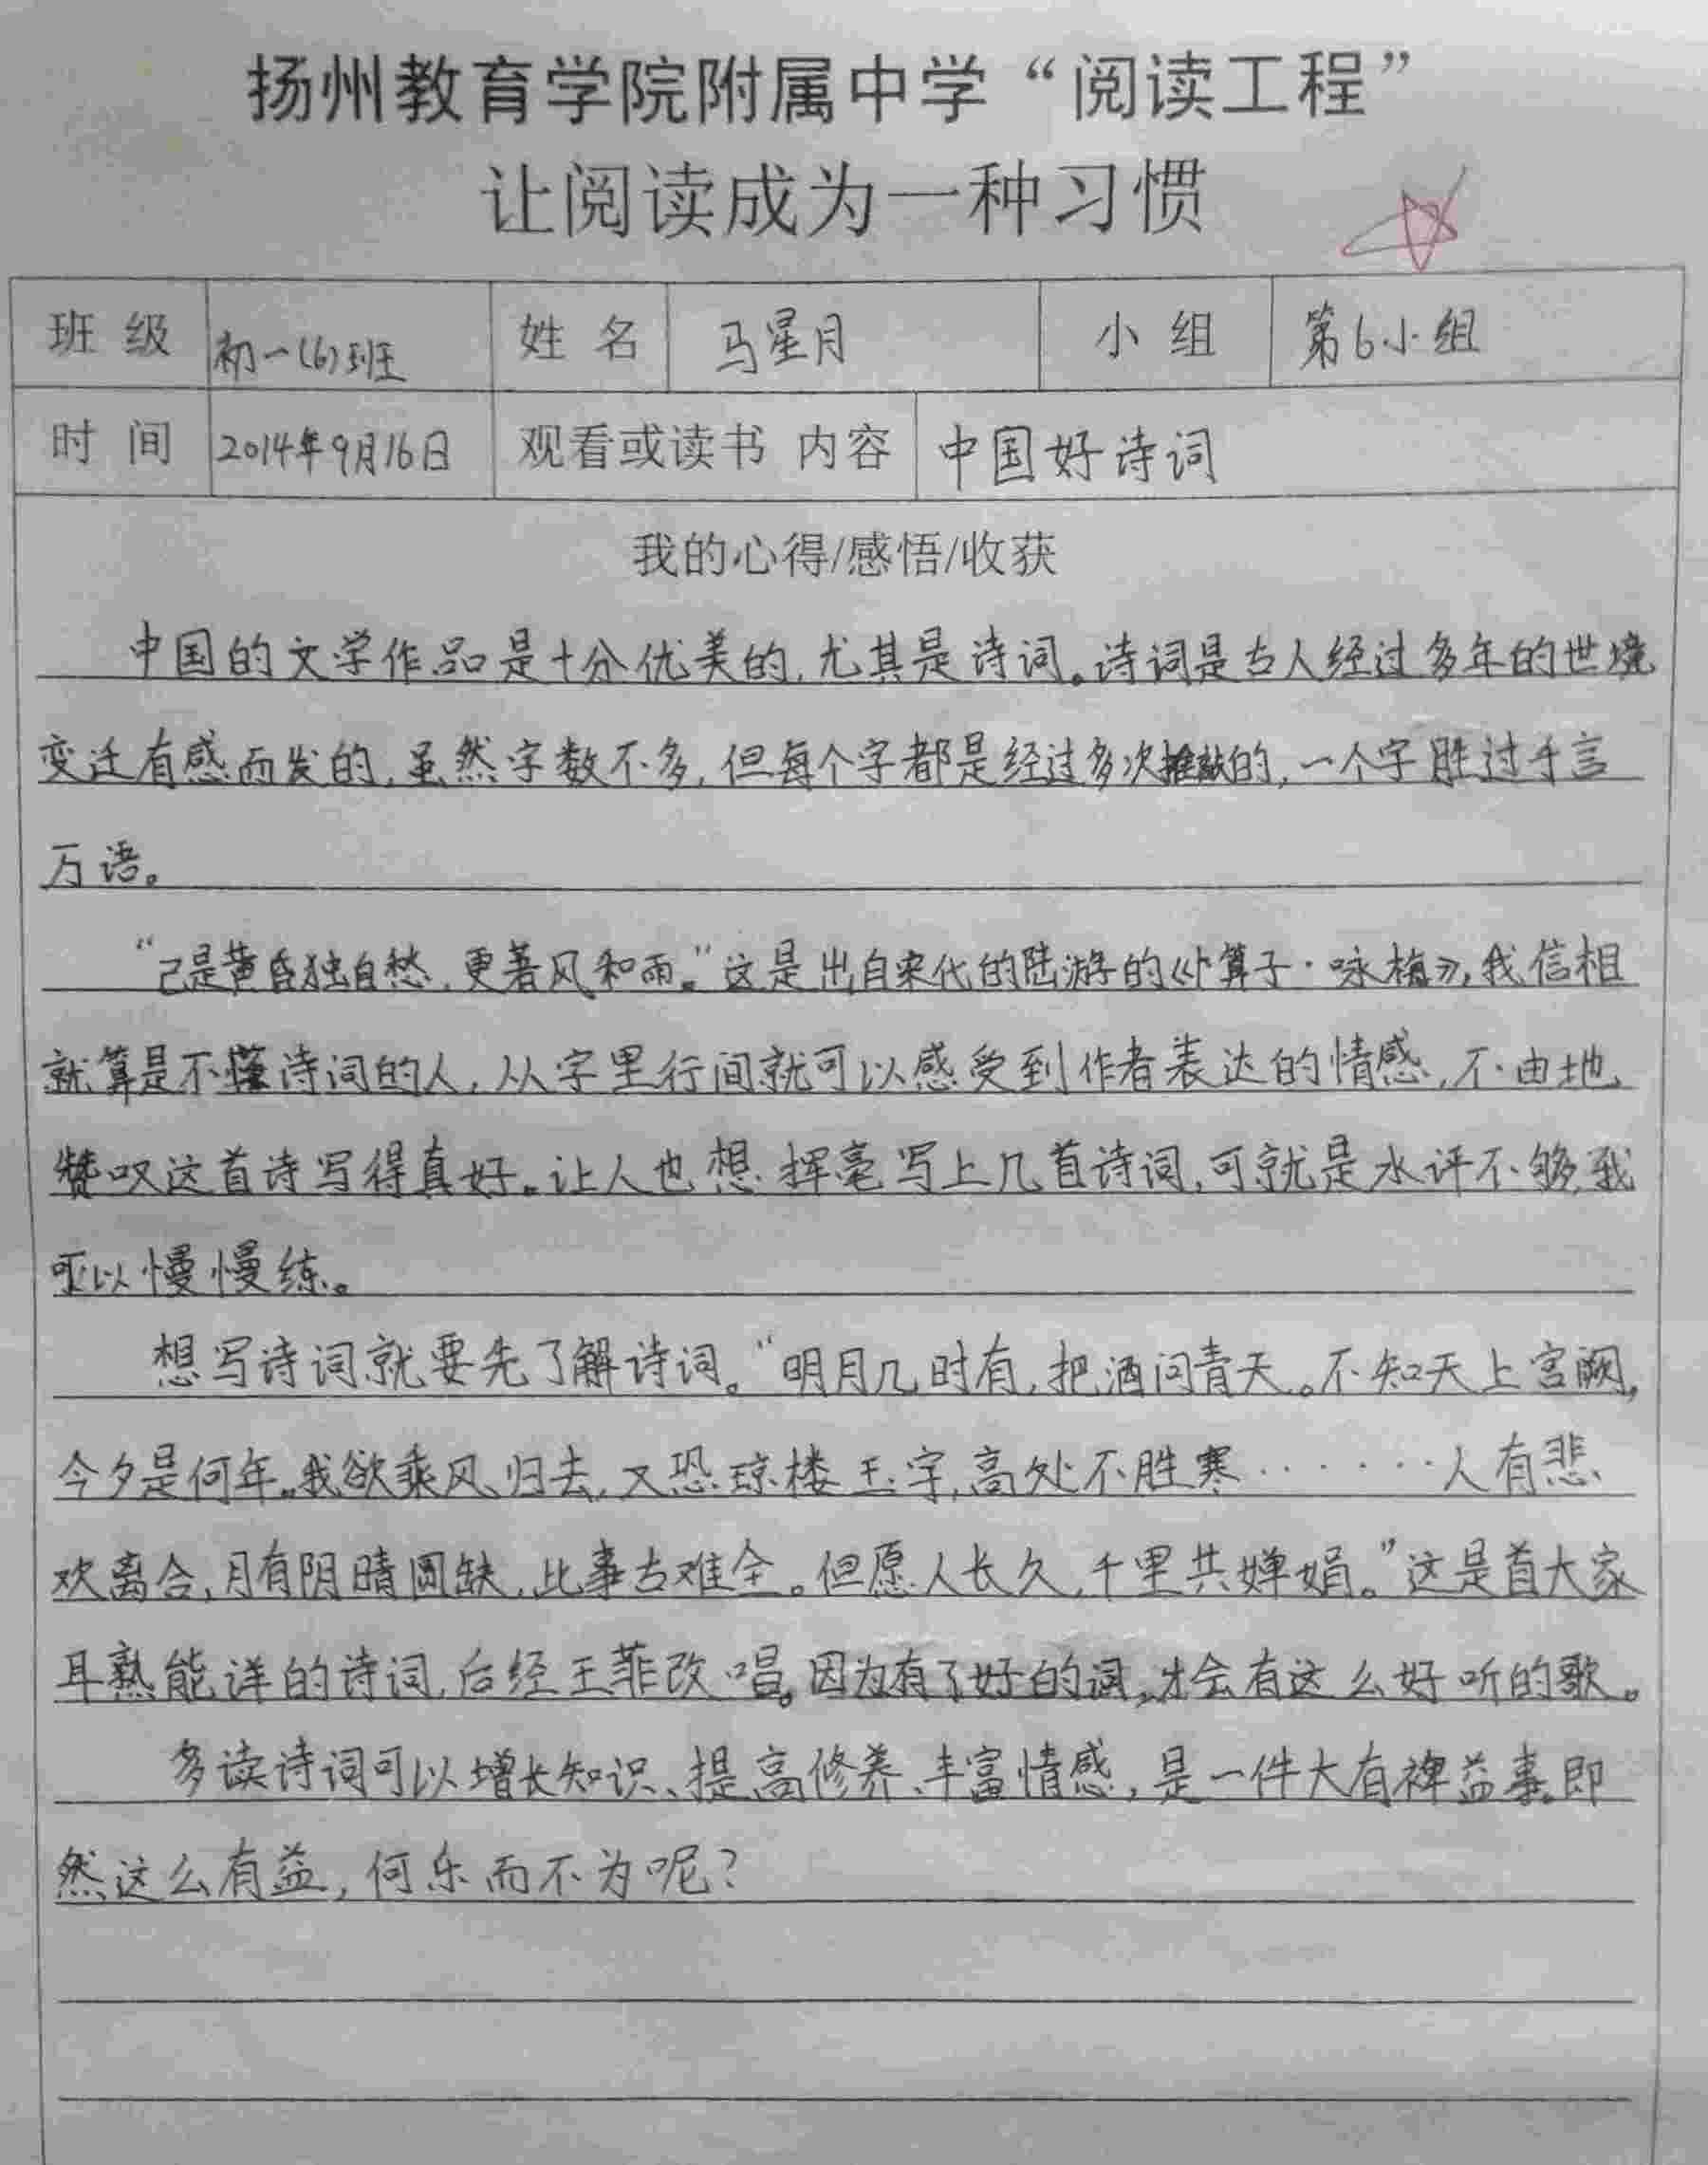 扬州教育学院附属中学“阅读工程”
让阅读成为一种习惯
班 级 初一(6)班 姓 名 马星月 小 组 第6小组
时 间 2014年9月16日 观看或读书 内容 中国好诗词
我的心得/感悟/收获
中国的文学作品是十分优美的,尤其是诗词。诗词是古人经过多年的世境
变迁有感而发的,虽然字数不多,但每个字都是经过多次推敲的,一个字胜过千言
万语。
“己是黄昏独自愁,更著风和雨。”这是出自宋代的陆游的《卜算子·咏梅》,我信相
就算是不懂诗词的人,从字里行间就可以感受到作者表达的情感,不由地
赞叹这首诗写得真好。让人也想挥毫写上几首诗词,可就是水评不够,我
可以慢慢练。
想写诗词就要先了解诗词。“明月几时有,把酒问青天。不知天上宫阙,
今夕是何年。我欲乘风归去,又恐琼楼玉宇,高处不胜寒······人有悲
欢离合,月有阴晴圆缺,此事古难全。但愿人长久,千里共婵娟。”这是首大家
耳熟能详的诗词,后经王菲改唱。因为有了好的词,才会有这么好听的歌。
多读诗词可以增长知识、提高修养、丰富情感,是一件大有裨益事。即
然这么有益,何乐而不为呢?